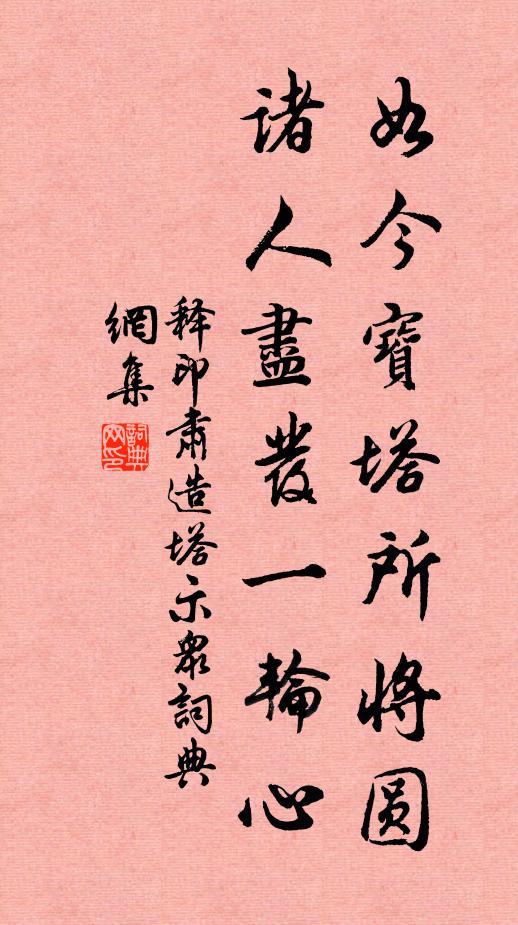 如今寶塔所將圓
諸人盡發一輪心
释印肅造塔示眾詞典
網集
詞典網印